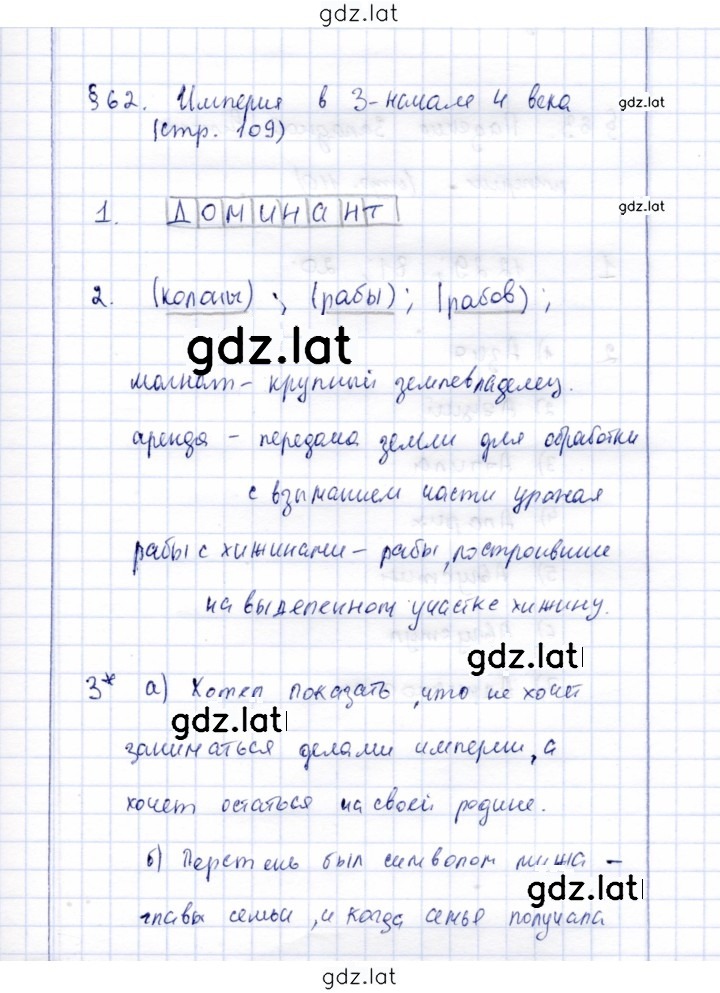 gdz.lat
§ 62. Империя в 3-начале 4 века
gdz.lat
(стр. 109)
1. ДОМИНАНТ
gdz.lat
2. (колоны); (рабы); (рабов);
gdz.lat
магнат - крупный землевладелец.
аренда - передача земли для обработки
с взыманием части урожая
рабы с хижинами - рабы, построившие
на выделенном участке хижину.
gdz.lat
3* а) Хотел показать, что не хочет
gdz.lat
заниматься делами империи, а
хочет остаться на своей родине.
б) Перстень был символом
gdz.lat
главы семьи, и когда семья получала
gdz.lat